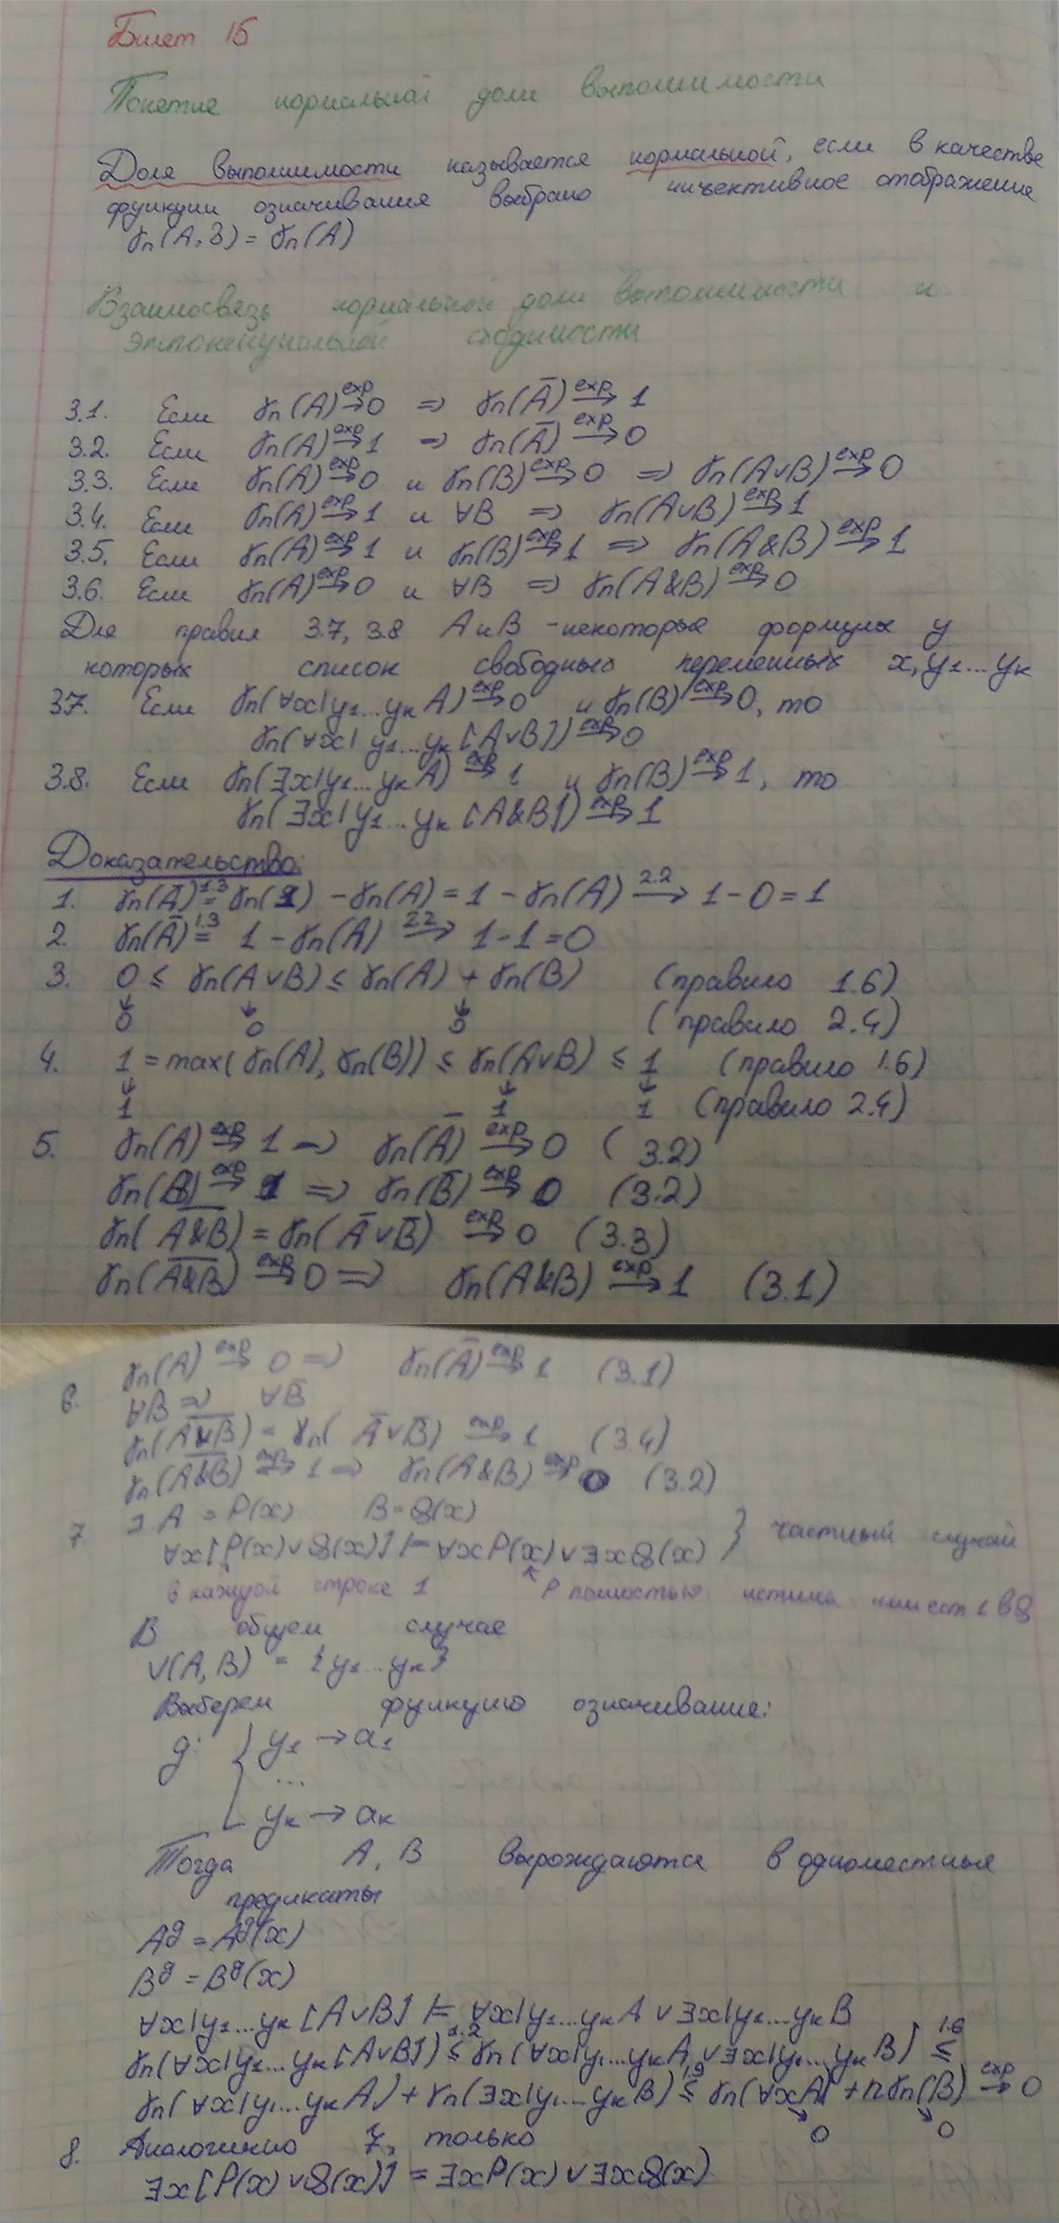 Билет 15
Понятие нормальной доли выполнимости
Доля выполнимости называется нормальной, если в качестве
функции означивания выбрано инъективное отображение
γn(A,3) = γn(A)
Взаимосвязь нормальной доли выполнимости и
экпоненциальной сходимости
3.1. Если γn(A) exp→ 0 => γn(Ā) exp→ 1
3.2. Если γn(A) exp→ 1 => γn(Ā) exp→ 0
3.3. Если γn(A) exp→ 0 и γn(B) exp→ 0 => γn(A∨B) exp→ 0
3.4. Если γn(A) exp→ 1 и ∀B => γn(A∨B) exp→ 1
3.5. Если γn(A) exp→ 1 и γn(B) exp→ 1 => γn(A&B) exp→ 1
3.6. Если γn(A) exp→ 0 и ∀B => γn(A&B) exp→ 0
Для правил 3.7, 3.8 A и B - некоторые формулы у
которых список свободных переменных x, y1...yk
3.7. Если γn(∀x|y1...yk A) exp→ 0 и γn(B) exp→ 0, то
γn(∀x|y1...yk [A∨B]) exp→ 0
3.8. Если γn(∃x|y1...yk A) exp→ 1 и γn(B) exp→ 1, то
γn(∃x|y1...yk [A&B]) exp→ 1
Доказательство:
1. γn(Ā) 1.3= γn(1) - γn(A) = 1 - γn(A) 2.2→ 1-0=1
2. γn(Ā) 1.3= 1 - γn(A) 2.2→ 1-1=0
3. 0 ≤ γn(A∨B) ≤ γn(A) + γn(B) (правило 1.6)
↓0 ↓0 ↓0 (правило 2.4)
4. 1 = max(γn(A), γn(B)) ≤ γn(A∨B) ≤ 1 (правило 1.6)
↓1 ↓1 ↓1 (правило 2.4)
5. γn(A) exp→ 1 => γn(Ā) exp→ 0 (3.2)
γn(B) exp→ 1 => γn(B̄) exp→ 0 (3.2)
γn(A̅&̅B̅) = γn(Ā∨B̄) exp→ 0 (3.3)
γn(A̅&̅B̅) exp→ 0 => γn(A&B) exp→ 1 (3.1)
6. γn(A) exp→ 0 => γn(Ā) exp→ 1 (3.1)
∀B => ∀B̄
γn(A̅&̅B̅) = γn(Ā∨B̄) exp→ 1 (3.4)
γn(A̅&̅B̅) exp→ 1 => γn(A&B) exp→ 0 (3.2)
7. ] A = P(x) B = Q(x)
∀x[P(x)∨Q(x)] ⊨ ∀xP(x)∨∃xQ(x) } частный случай
в каждой строке 1 ↖ P полностью истина или есть 1 в Q
В общем случае
V(A,B) = {y1...yk}
Выберем функцию означивание:
g: { y1 → a1
...
yk → ak
Тогда A, B вырождаются в одноместные
предикаты
A^g = A^g(x)
B^g = B^g(x)
∀x|y1...yk [A∨B] ⊨ ∀x|y1...yk A ∨ ∃x|y1...yk B
γn(∀x|y1...yk[A∨B]) 1.2≤ γn(∀x|y1...yk A ∨ ∃x|y1...yk B) 1.6≤
γn(∀x|y1...yk A) + γn(∃x|y1...yk B) 1.9≤ γn(∀xA) + nγn(B) exp→ 0
↘0 ↘0
8. Аналогично 7, только
∃x[P(x)∨Q(x)] = ∃xP(x)∨∃xQ(x)